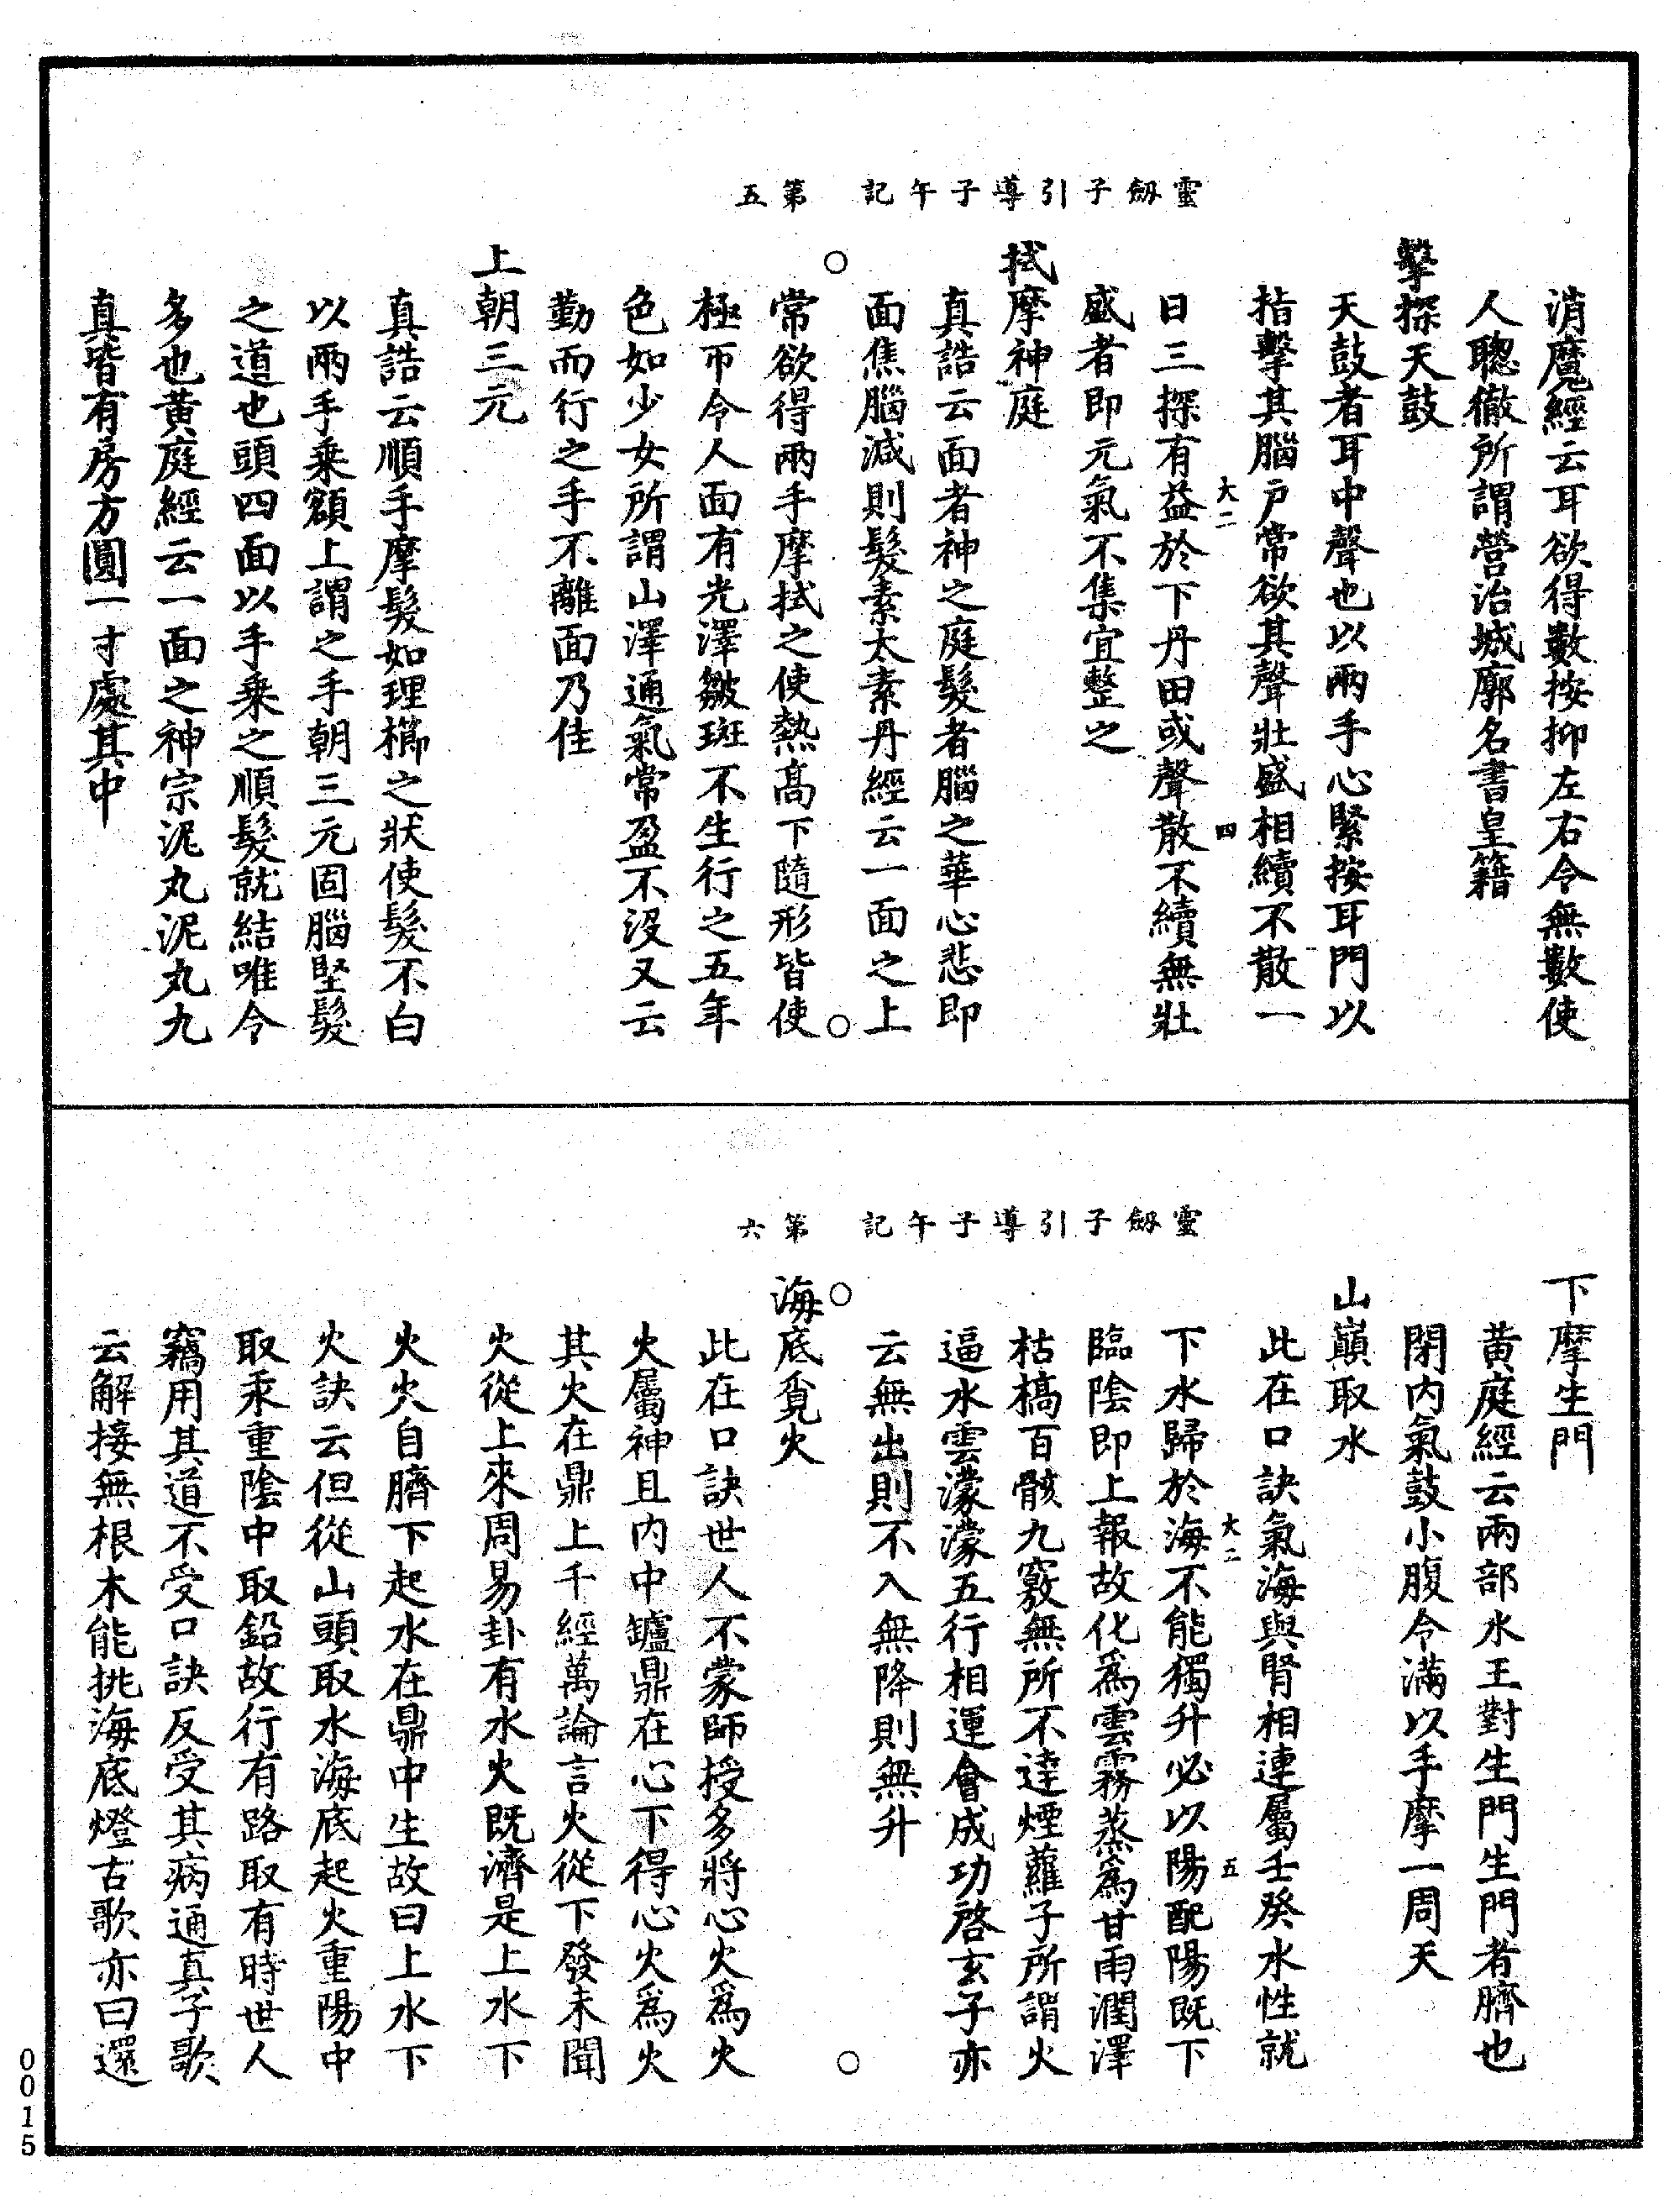 靈劔子引導子午記　第五
消魔經云耳欲得數按抑左右令無數使
人聰徹所謂營治城廓名書皇籍
擊探天鼓
天鼓者耳中聲也以兩手心緊按耳門以
指擊其腦戶常欲其聲壯盛相續不散一
大二　四
日三探有益於下丹田或聲散不續無壯
盛者即元氣不集宜整之
拭摩神庭
真誥云面者神之庭髮者腦之華心悲即
面焦腦減則髮素太素丹經云一面之上
常欲得兩手摩拭之使熱髙下隨形皆使
極帀令人面有光澤皺斑不生行之五年
色如少女所謂山澤通氣常盈不没又云
勤而行之手不離面乃佳
上朝三元
真誥云順手摩髮如理櫛之狀使髮不白
以兩手乘額上謂之手朝三元固腦堅髮
之道也頭四面以手乘之順髮就結唯令
多也黃庭經云一面之神宗泥丸泥丸九
真皆有房方圓一寸處其中
靈劔子引導子午記　第六
下摩生門
黃庭經云兩部水王對生門生門者臍也
閉内氣鼓小腹令滿以手摩一周天
山巔取水
此在口訣氣海與腎相連屬壬癸水性就
大二　五
下水歸於海不能獨升必以陽配陽既下
臨陰即上報故化爲雲霧蒸爲甘雨潤澤
枯槁百骸九竅無所不達煙蘿子所謂火
逼水雲濛濛五行相運會成功啓玄子亦
云無出則不入無降則無升
海底覓火
此在口訣世人不蒙師授多將心火爲火
火屬神且内中罏鼎在心下得心火爲火
其火在鼎上千經萬論言火從下發未聞
火從上來周易卦有水火既濟是上水下
火火自臍下起水在鼎中生故曰上水下
火訣云但從山頭取水海底起火重陽中
取汞重陰中取鉛故行有路取有時世人
竊用其道不受口訣反受其病通真子歌
云解接無根木能挑海底燈古歌亦曰還
0015